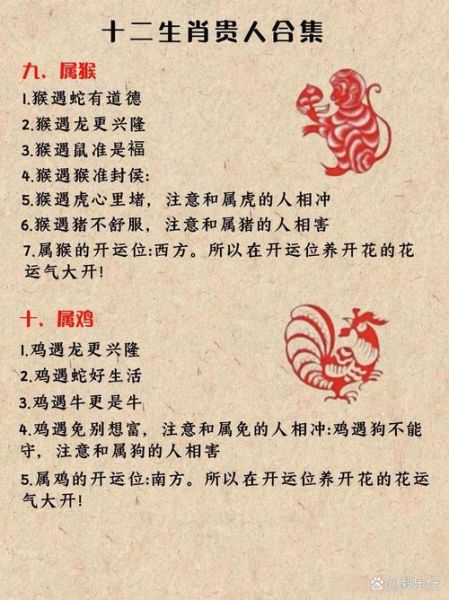 十二生肖贵人合集
九、属猴
1.猴遇蛇有道德
2.猴遇龙更兴隆
3.猴遇鼠准是福
4.猴遇猴准封侯:
5.猴遇虎心里堵，注意和属虎的人相冲
6.猴遇猪不舒服，注意和属猪的人相害
7.属猴的开运位:西方。所以在开运位养开花的花
运气大开!
十、属鸡
1.鸡遇龙更兴隆
2.鸡遇蛇好生活
3.鸡遇牛更是牛
4.鸡遇免别想富，注意和属免的人相冲:鸡遇狗不能
守，注意和属狗的人相害
5.属鸡的开运位:南方。所以在开运位养开花的花运
气大开!